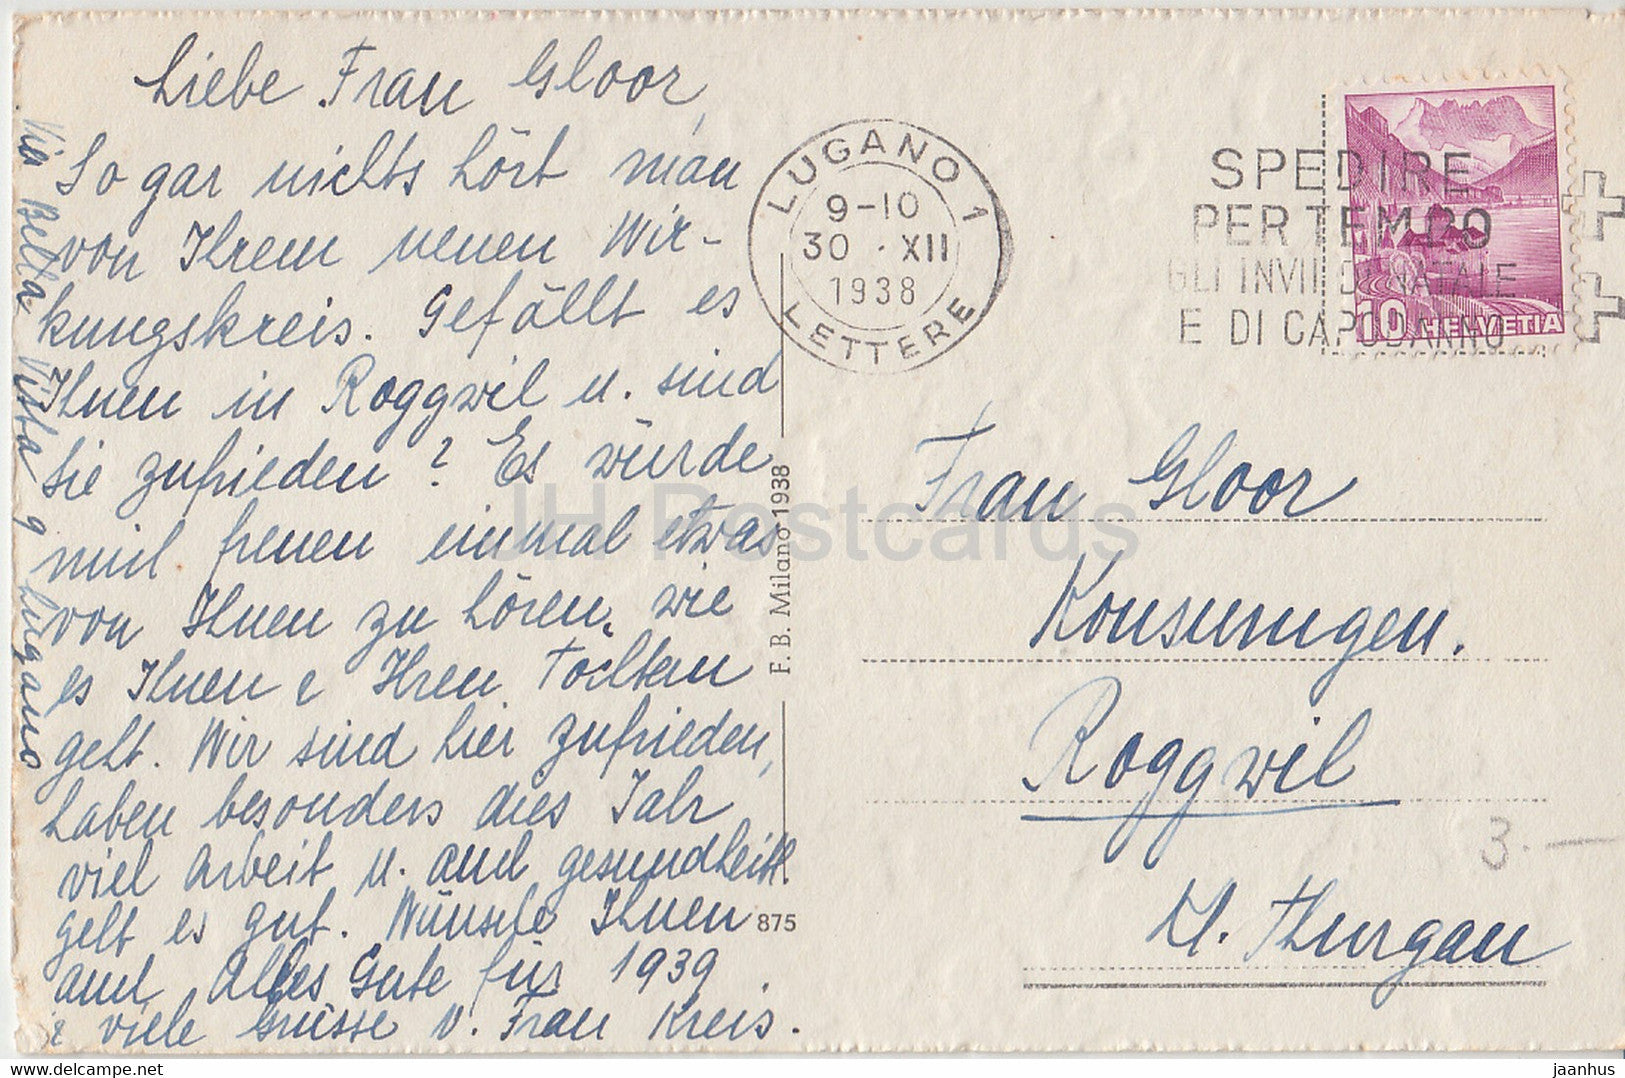 Liebe Frau Gloor,
So gar nichts hört man
von Ihrem neuen Wir-
kungskreis. Gefällt es
Ihnen in Roggwil u. sind
Sie zufrieden? Es würde
mich freuen einmal etwas
von Ihnen zu hören, wie
es Ihnen & Ihren Töchtern
geht. Wir sind hier zufrieden,
haben besonders dies Jahr
viel Arbeit u. auch gesundheitl.
geht es gut. Wünsche Ihnen
auch Alles Gute für 1939.
& viele Grüsse v. Frau Kreis.
Via Bella Vista 9 Lugano
F. B. Milano 1938
875
LUGANO 1
9-10
30 · XII
1938
LETTERE
SPEDIRE
PER TEMPO
GLI INVII DI NATALE
E DI CAPODANNO
10 HELVETIA
Frau Gloor
Roggwil
Kt. Thurgau
3.—
JH Postcards
jaanhus